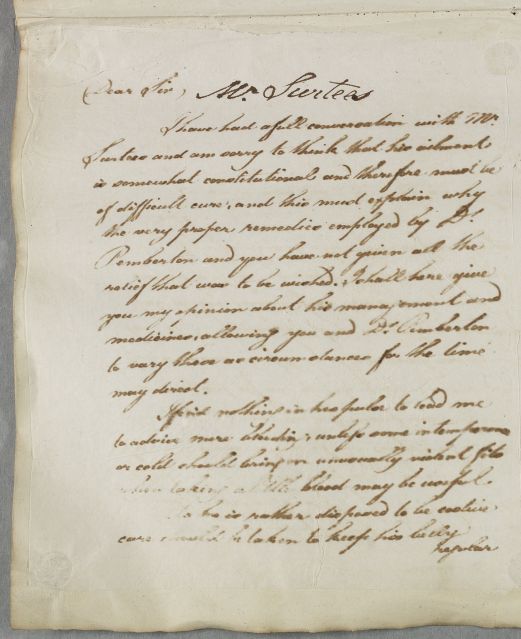 Dear Sir, Mr. Surtees
I have had a full conversation with Mr.
Surtees and am sorry to think that his ailment
is somewhat constitutional and therefore must be
of difficult cure, and this must explain why
the very proper remedies employed by Dr
Pemberton and you have not given all the
relief that was to be wished. I shall here give
you my opinion about his management and
medicines, allowing you and Dr. Pemberton
to vary these as circumstances for the time
may direct.
I find nothing in his pulse to lead me
to advise more bleeding, unless some intemperance
or cold should bring on unusually violent fits
when taking a little blood may be useful.
As he is rather disposed to be costive
care should be taken to keep his belly
regular